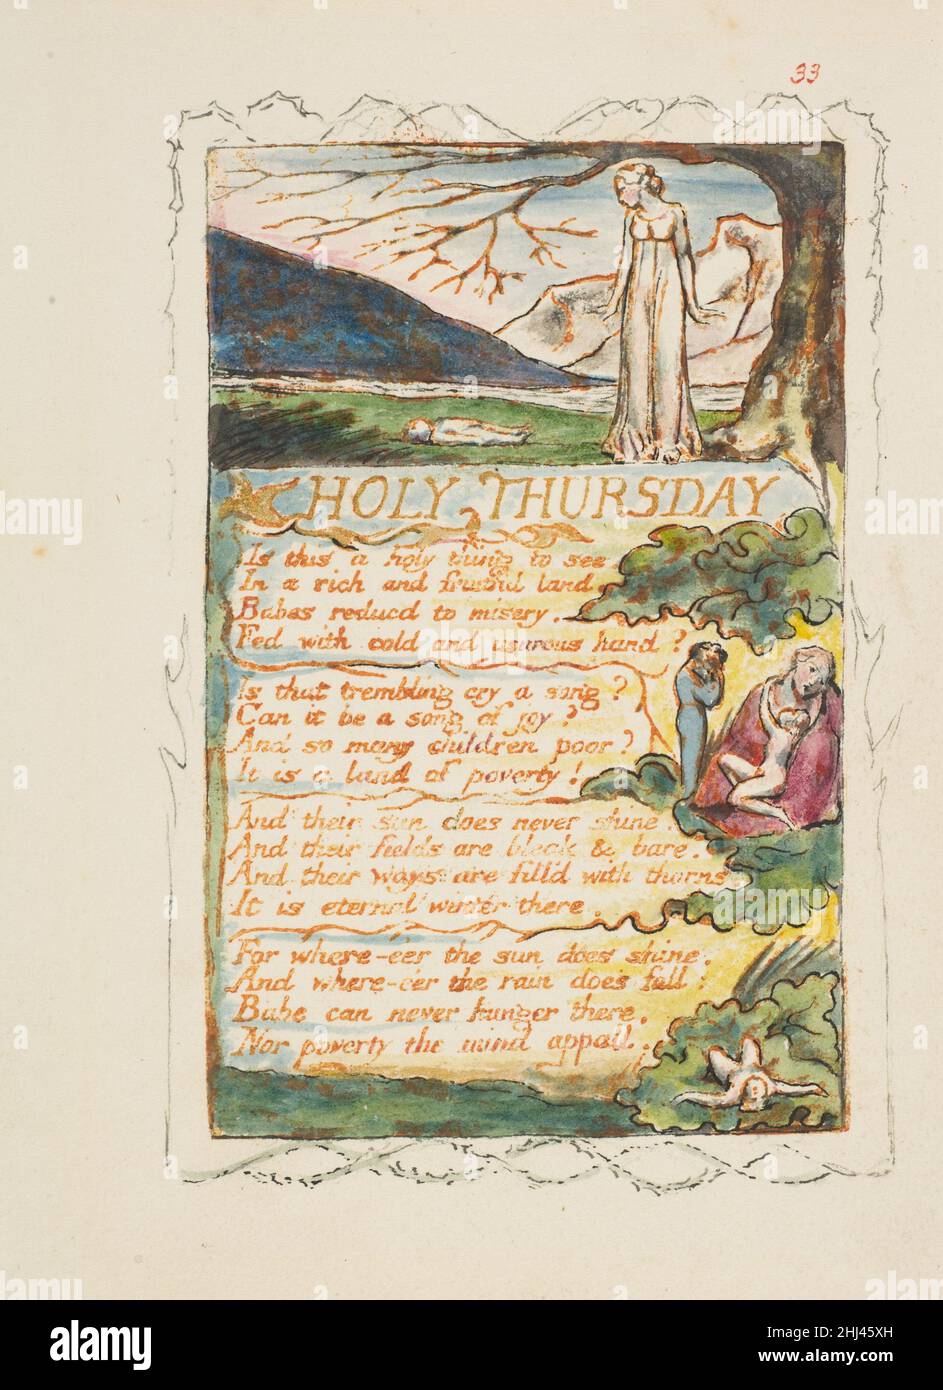 33
HOLY THURSDAY
Is this a holy thing to see
In a rich and fruitful land
Babes reducd to misery.
Fed with cold and usurous hand?
Is that trembling cry a song?
Can it be a song of joy?
And so many children poor?
It is a land of poverty!
And their sun does never shine.
And their fields are bleak & bare.
And their ways are fill'd with thorns
It is eternal winter there.
For where-e'er the sun does shine.
And where-e'er the rain does fall:
Babe can never hunger there,
Nor poverty the mind appall.
alamy
Image ID: 2HJ45XH
www.alamy.com